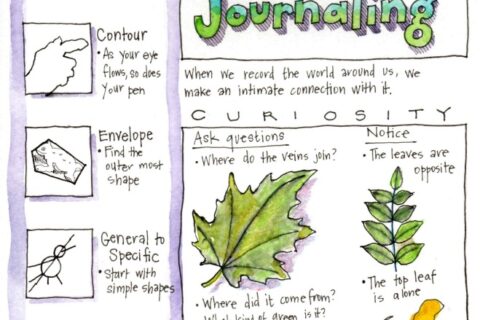 Journaling
When we record the world around us, we
make an intimate connection with it.
CURIOSITY
Contour
• As your eye
flows, so does
your pen
Envelope
• Find the
outer most
shape
General to
Specific
• Start with
simple shapes
Ask questions
• Where do the veins join?
• Where did it come from?
What kind of green is it?
Notice
• The leaves are
opposite
• The top leaf
is alone